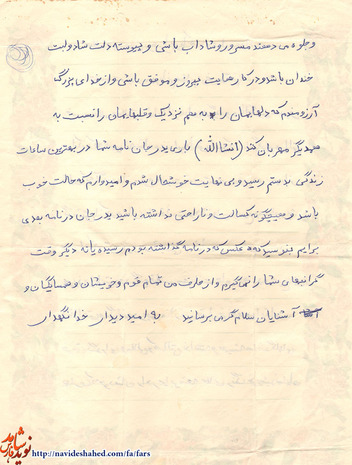 و جلوه می دهند مسرور و شاداب باشی و پیوسته دلت شاد و لبت
خندان باشد و در کارهایت پیروز و موفق باشی و از خدای بزرگ
آرزومندم که دلهایمان را به هم نزدیک و قلبهایمان را نسبت به
همدیگر مهربان کند (انشاالله) باری پدر جان نامه شما در بهترین ساعات
زندگی بدستم رسید و بی نهایت خوشحال شدم و امیدوارم که حالت خوب
باشد و هیچگونه کسالت و ناراحتی نداشته باشید پدر جان در نامه بعدی
برایم بنویسید که عکس که در نامه گذاشته بودم رسیده یا نه دیگر وقت
گرانبهای شما را نمیگیرم و از طرف من تمام قوم و خویشان و همسایگان و
آشنایان سلام گرمی برسانید به امید دیدار خدانگهدار
نوید شاهد
فارس
http://navideshahed.com/fa/fars